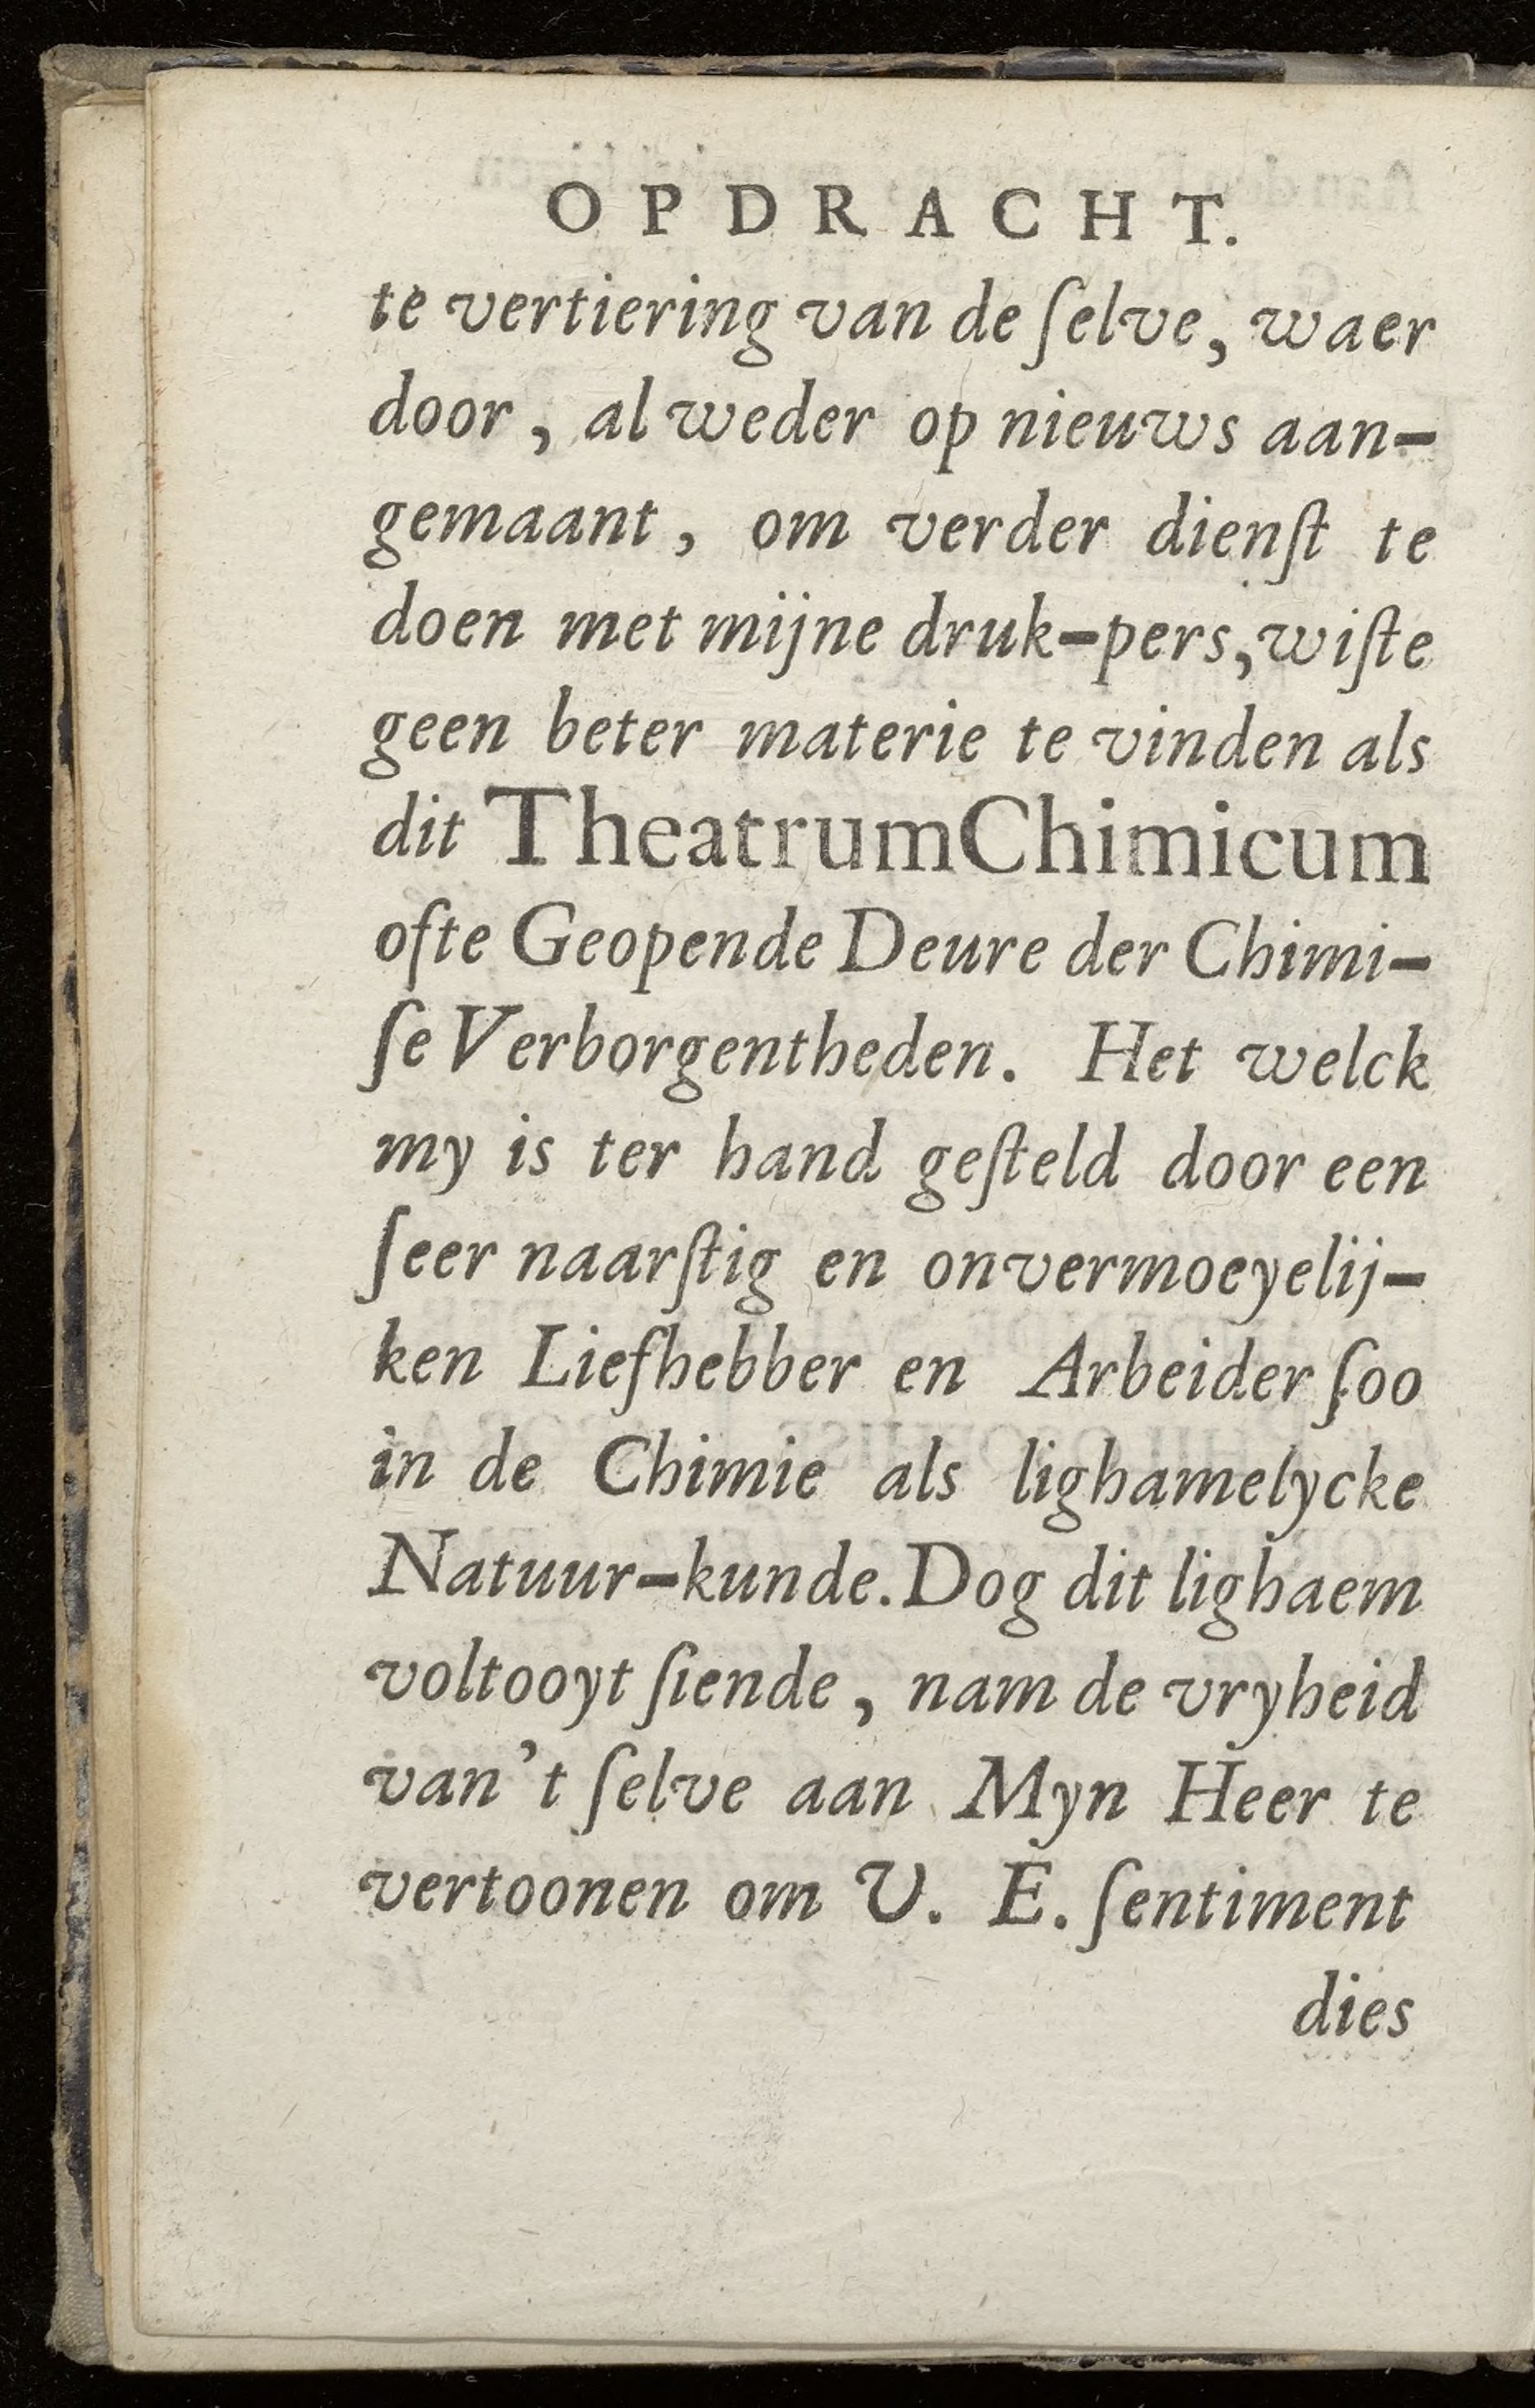 OPDRACHT.
te vertiering van de ſelve, waer
door, al weder op nieuws aan-
gemaant, om verder dienſt te
doen met mijne druk-pers, wiſte
geen beter materie te vinden als
dit Theatrum Chimicum
ofte Geopende Deure der Chimi-
ſe Verborgentheden. Het welck
my is ter hand geſteld door een
ſeer naarſtig en onvermoeyelij-
ken Liefhebber en Arbeider ſoo
in de Chimie als lighamelycke
Natuur-kunde. Dog dit lighaem
voltooyt ſiende, nam de vryheid
van't ſelve aan Myn Heer te
vertoonen om U. E. ſentiment
dies